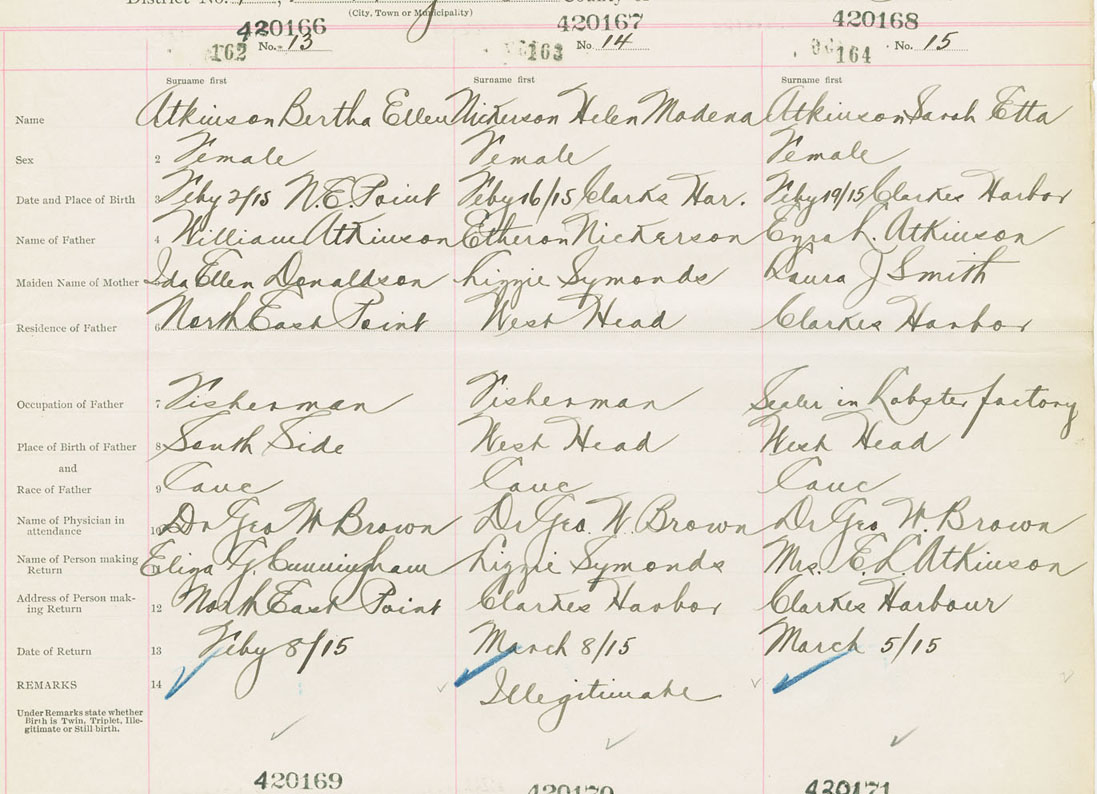 District No.
(City, Town or Municipality)
County of
420166 420167 420168
162 No. 13 163 No. 14 164 No. 15
Surname first Surname first Surname first
Name Atkinson Bertha Ellen Nickerson Helen Modena Atkinson Sarah Etta
Sex 2 Female Female Female
Date and Place of Birth 3 Feby 2/15 N.E. Point Feby 16/15 Clarks Har. Feby 19/15 Clarkes Harbor
Name of Father 4 William Atkinson Etheron Nickerson Ezra L. Atkinson
Maiden Name of Mother Ida Ellen Donaldson Lizzie Symonds Laura J Smith
Residence of Father 6 North East Point West Head Clarkes Harbor
Occupation of Father 7 Fisherman Fisherman Sealer in Lobster factory
Place of Birth of Father 8 South Side West Head West Head
and
Race of Father 9 Cauc Cauc Cauc
Name of Physician in
attendance 10 Dr Geo W Brown Dr Geo. W. Brown Dr Geo. W. Brown
Name of Person making
Return Eliza G. Cunningham Lizzie Symonds Mrs. E. L. Atkinson
Address of Person mak-
ing Return 12 North East Point Clarkes Harbor Clarkes Harbour
Date of Return 13 Feby 8/15 March 8/15 March 5/15
REMARKS 14 Illegitimate
Under Remarks state whether
Birth is Twin, Triplet, Ille-
gitimate or Still birth.
420169 420170 420171